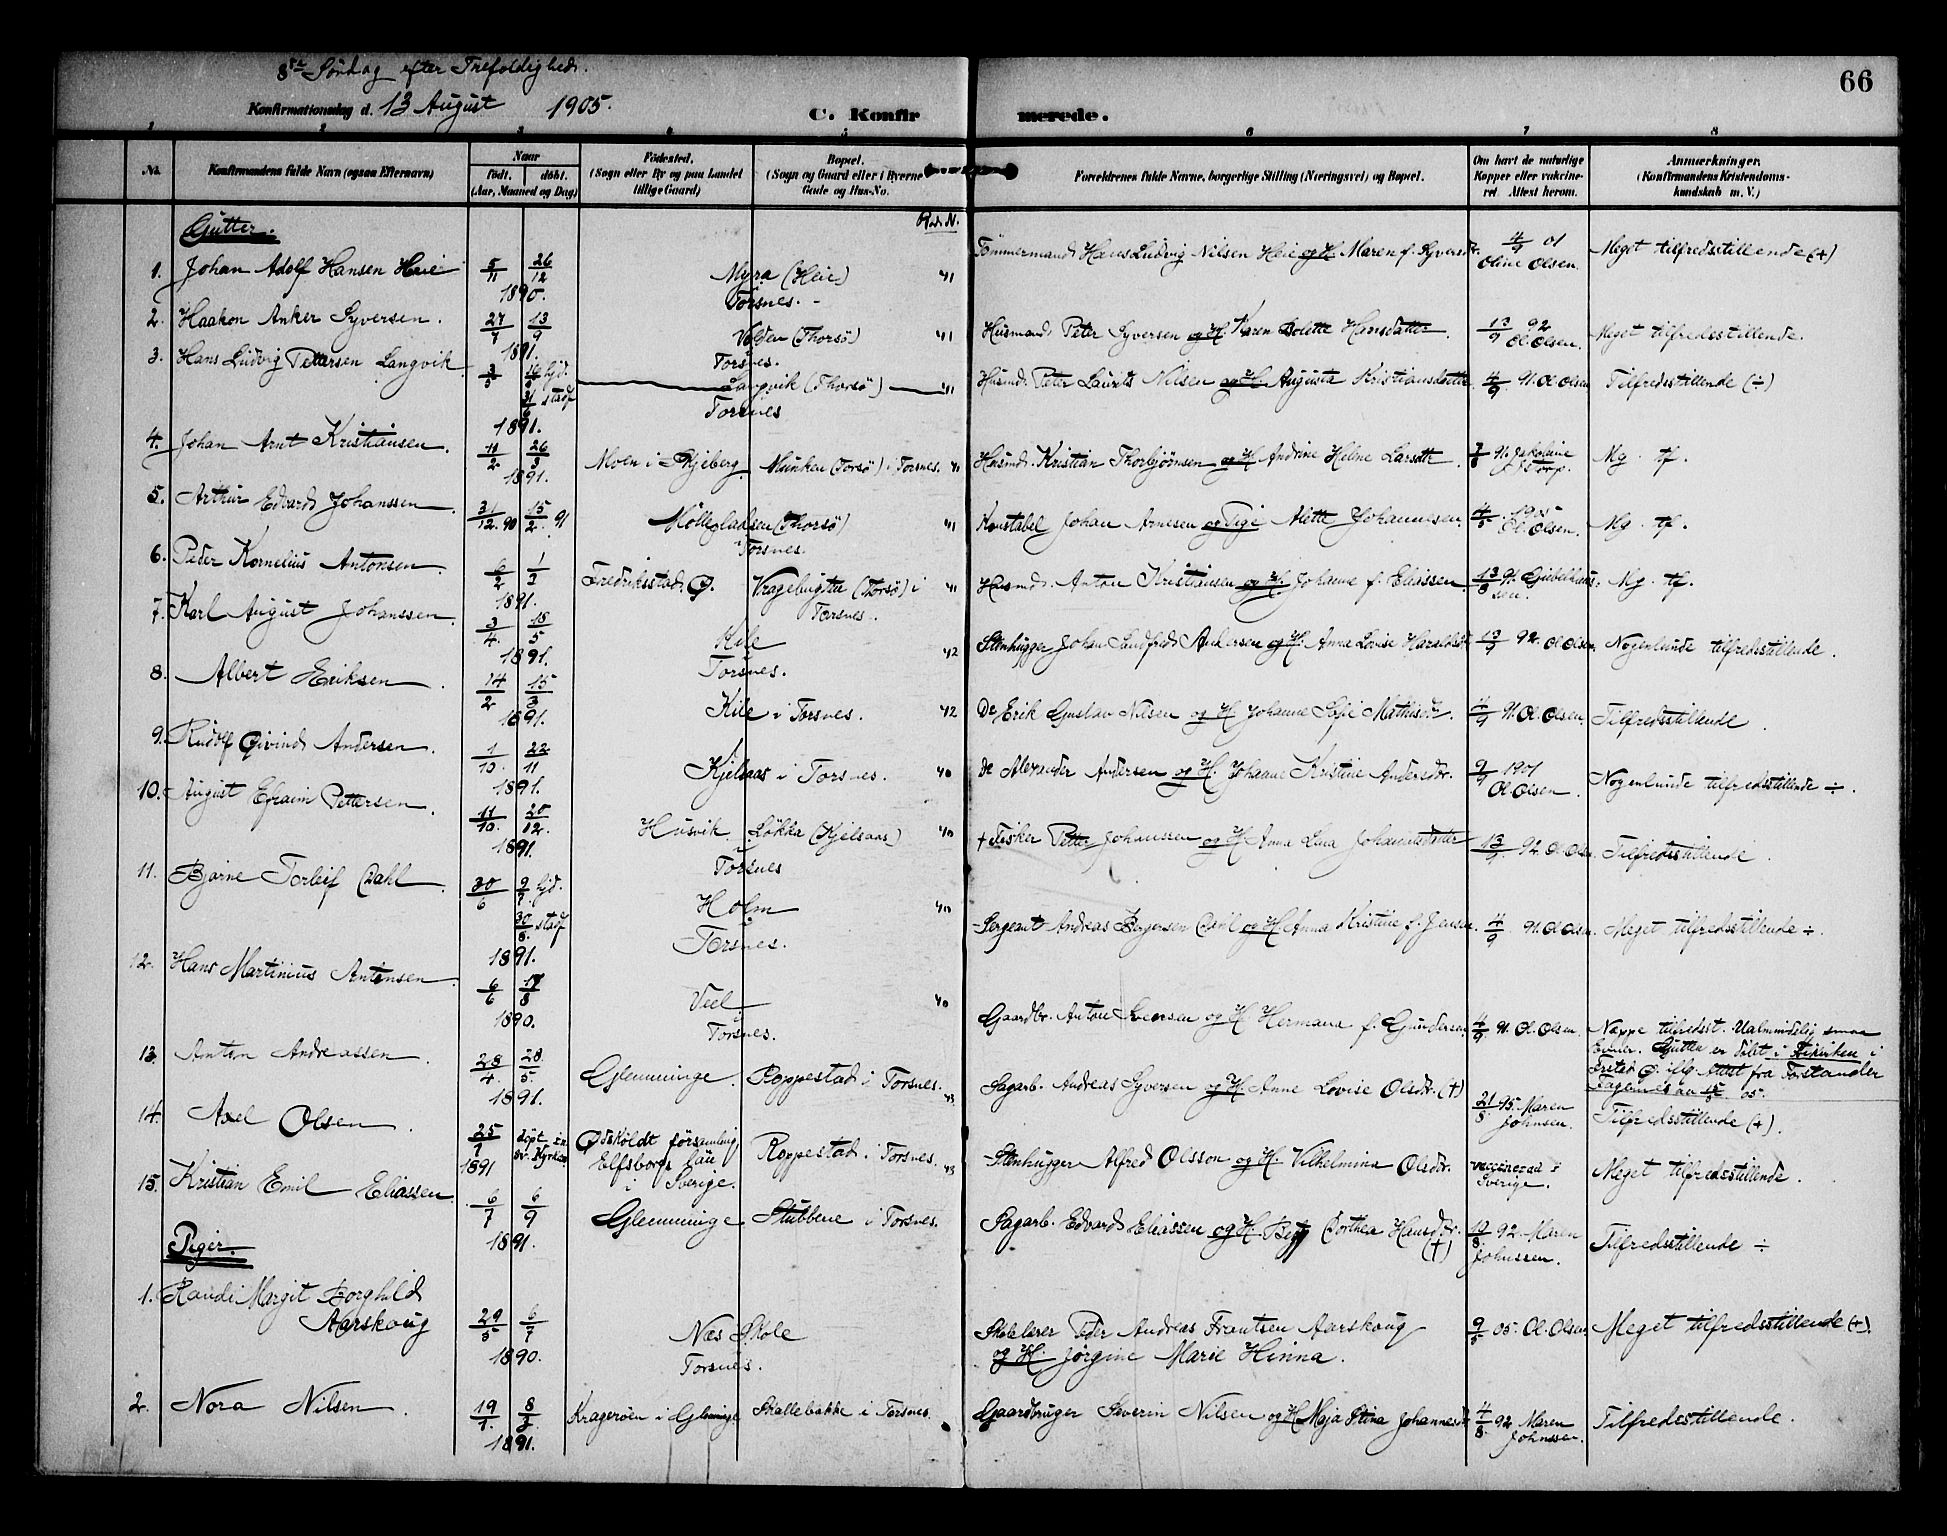 8de Søndag efter Trefoldighed.
Konfirmationsdag d. 13 August 1905.
C. Konfirmerede.
66
1 2 3 4 5 6 7 8
No. Konfirmandens fulde Navn (ogsaa Efternavn) Naar födt. döbt. (Aar, Maaned og Dag) Födested. (Sogn eller By og paa Landet tillige Gaard) Bopæl. (Sogn og Gaard eller i Byerne Gade og Hus-No. Forældrenes fulde Navne, borgerlige Stilling (Næringsvei) og Bopæl. Om havt de naturlige Kopper eller vaccineret. Attest herom. Anmærkninger. (Konfirmandens Kristendomskundskab m. V.)
Gutter.
1. Johan Adolf Hansen Heie 5/11 26/12 1890. Myra (Heie) Torsnes. 41 Tømmermand Hans Ludvig Nilsen Heie og H. Maren f. Syversdtr. 4/9 01 Oline Olsen. Meget tilfredsstillende (+)
2. Haakon Anker Syversen. 27/7 13/9 1891. Velden (Thorsø) Torsnes. 41 Husmand Peter Syversen og H. Karen Bolette Hansdatter 13/9 92 Ol. Olsen. Meget tilfredsstillende.
3. Hans Ludvig Pettersen Langvik 3/5 hjd. 31/6 stadf 1891. Langvik (Thorsø) Torsnes 41 Husmd. Peter Laurits Nilsen og H. Augusta Kristiansdatter 4/9 91. Ol Olsen Tilfredsstillende (÷)
4. Johan Arnt Kristiansen. 11/2 26/3 1891. Moen i Skjeberg Munken (Torsø) i Torsnes. 41 Husmd. Kristian Thorbjørnsen og H. Andrine Helene Larsdtr. 7/8 91. Jakobine Mg. tf.
5. Arthur Edvard Johanssen. 31/12 90 15/2 91 Møllegladsen (Thorsø) Torsnes. 41 Konstabel Johan Arnesen og Pige Alette Johannesen. 4/5 1905 Ol. Olsen. Mg. tf.
6. Peder Kornelius Antonsen. 6/2 1/3 1891. Fredriksstad. Ø. Vragebugta (Torsø) i Torsnes. 41 Husmd. Anton Kristiansen og H. Johanne f. Eliassen. 13/8 91. Mg. tf.
7. Karl August Johanssen. 3/4 18/5 1891. Kile Torsnes. 42 Stenhugger Johan Sandfred Andersen og H. Anna Lovise Haraldsdtr. 13/9 92. Ol Olsen. Nogenlunde tilfredsstillende.
8. Albert Eriksen. 14/2 15/3 1891. Kile i Torsnes. 42 Do Erik Gustav Nilsen og H. Johanne Sofie Mathisdtr. 4/9 91. Ol. Olsen Tilfredsstillende.
9. Rudolf Øivind Andersen. 1/10. 22/11 1891. Kjelsaas i Torsnes. 40 do Alexander Andersen og H. Johanne Kristine Andersdtr. 9/9 1901 Ol. Olsen. Nogenlunde tilfredsstillende ÷.
10. August Efraim Pettersen. 11/10. 20/12. 1891. Husvik Løkka (Kjelsaas) Torsnes 40 + Fisker Petter Johanssen og H. Anna Lina Johannesdatter 13/9 92. Ol Olsen. Tilfredsstillende.
11. Bjarne Torleif Dahl. 30/6 9/7. hjd. 30/8. stadf 1891. Holm Torsnes. 40 Sergeant Andreas Birgersen Dahl og H. Anna Kristine f. Jensen. 4/9 91. Ol Olsen. Meget tilfredsstillende ÷.
12. Hans Martinius Antonsen 6/6 17/8 1890. Veel Torsnes. 40 Gaardbr. Anton Svensen og H. Hermana f. Gundersen 4/9. 91. Ol. Olsen Næppe tilfredsst. Ualmindelig smaa Evner. Gutten er døbt i Frikirken i Fr.stad Ø. iflg. Attest fra Forstander av 15/5 05.
13 Anton Andreassen. 28/4. 28/5. 1891. Glemminge. Roppestad i Torsnes. 43 Sagarb. Andreas Syversen og H. Anne Lovise Olsdtr. (+) 21/8 95. Maren Johnsen. Tilfredsstillende (+).
14. Axel Olsen. 25/7 1891 döpt i sv. Kyrkan Ødskøldt församling Elfsborgs län i Sverige. Roppestad i Torsnes. 43 Stenhugger Alfred Olsson og H. Vilhelmina Olsdtr. vaccinerad i Sverige. Meget tilfredsstillende.
15. Kristian Emil Eliassen. 6/7 6/9 1891. Glemminge Stubbene i Torsnes. Sagarb. Edvard Eliassen og H. Dorthea Hansdtr. (+) 19/8 92. Maren Johnssen. Tilfredsstillende ÷
Piger.
1. Randi Margit Borghild Aarskoug 29/5 6/7 1890. Næs Skole Torsnes. Skolelærer Peder Andreas Frantsen Aarskoug og H. Jørgine Marie Hinna. 9/5 05. Ol. Olsen. Meget tilfredsstillende (+).
2. Nora Nilsen. 19/1. 8/3. 1891. Kragerøen i Glemminge Skallebakke i Torsnes. Gaardbruger Severin Nilsen og H. Maja Stina Johannesdtr 4/8. 92. Maren Johnssen. Tilfredsstillende.